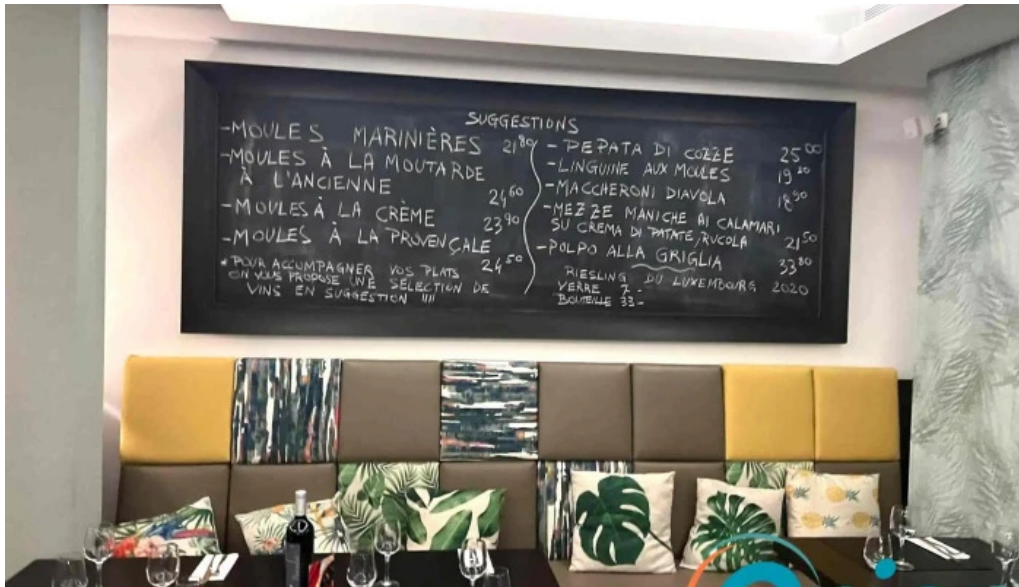 SUGGESTIONS
-MOULES MARINIÈRES 21⁸⁰
-MOULES À LA MOUTARDE
À L'ANCIENNE 24⁶⁰
-MOULES À LA CRÈME 23⁹⁰
-MOULES À LA PROVENÇALE 24⁵⁰
*POUR ACCOMPAGNER VOS PLATS
ON VOUS PROPOSE UNE SÉLECTION DE
VINS EN SUGGESTION !!!!
-PEPATA DI COZZE 25⁰⁰
-LINGUINE AUX MOULES 19²⁰
-MACCHERONI DIAVOLA 18⁹⁰
-MEZZE MANICHE AI CALAMARI
SU CREMA DI PATATE/RUCOLA 21⁵⁰
-POLPO ALLA GRIGLIA 33⁸⁰
RIESLING DU LUXEMBOURG 2020
VERRE 7.-
BOUTEILLE 33-